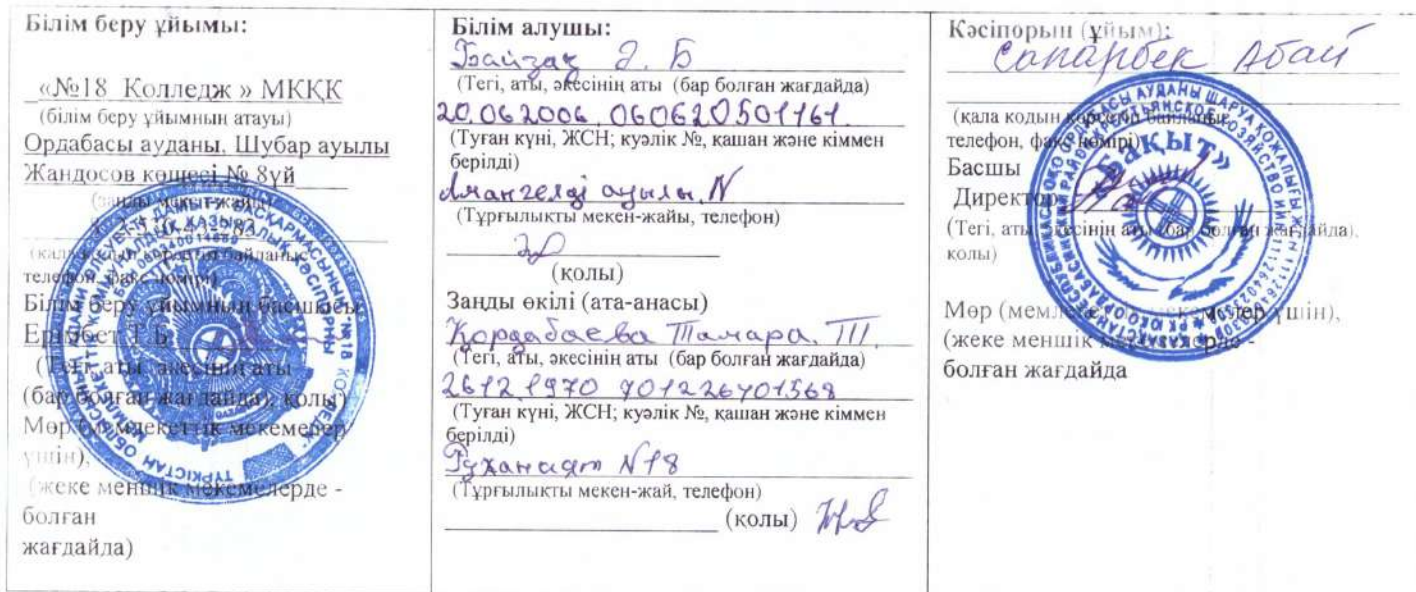 Білім беру ұйымы:
«№18 Колледж » МКҚК
(білім беру ұйымның атауы)
Ордабасы ауданы, Шубар ауылы
Жандосов көшесі № 8үй
(заңды мекен-жайы)
(қала кодын көрсетіп байланыс
телефон, факс нөмірі)
Білім беру ұйымның басшысы
Ерімбет Т.Б.
(Тегі, аты, әкесінің аты
(бар болған жағдайда), қолы)
Мөр (мемлекеттік мекемелер
үшін),
(жеке меншік мекемелерде -
болған
жағдайда)
Білім алушы:
Байзақ Ә. Б
(Тегі, аты, әкесінің аты (бар болған жағдайда)
20.06.2006. 060620501161.
(Туған күні, ЖСН; куәлік №, қашан және кіммен
берілді)
Амангелді ауылы. N
(Тұрғылықты мекен-жайы, телефон)
(қолы)
Заңды өкілі (ата-анасы)
Қордабаева Тамара. Т.
(Тегі, аты, әкесінің аты (бар болған жағдайда)
26.12.1970 701226401568
(Туған күні, ЖСН; куәлік №, қашан және кіммен
берілді)
N18
(Тұрғылықты мекен-жай, телефон)
(қолы)
Кәсіпорын (ұйым):
Сапарбек Абай
(қала кодын көрсетіп байланыс
телефон, факс нөмірі)
Басшы
Директор
(Тегі, аты, әкесінің аты (бар болған жағдайда),
қолы)
Мөр (мемлекеттік мекемелер үшін),
(жеке меншік мекемелерде -
болған жағдайда
«Бақыт»